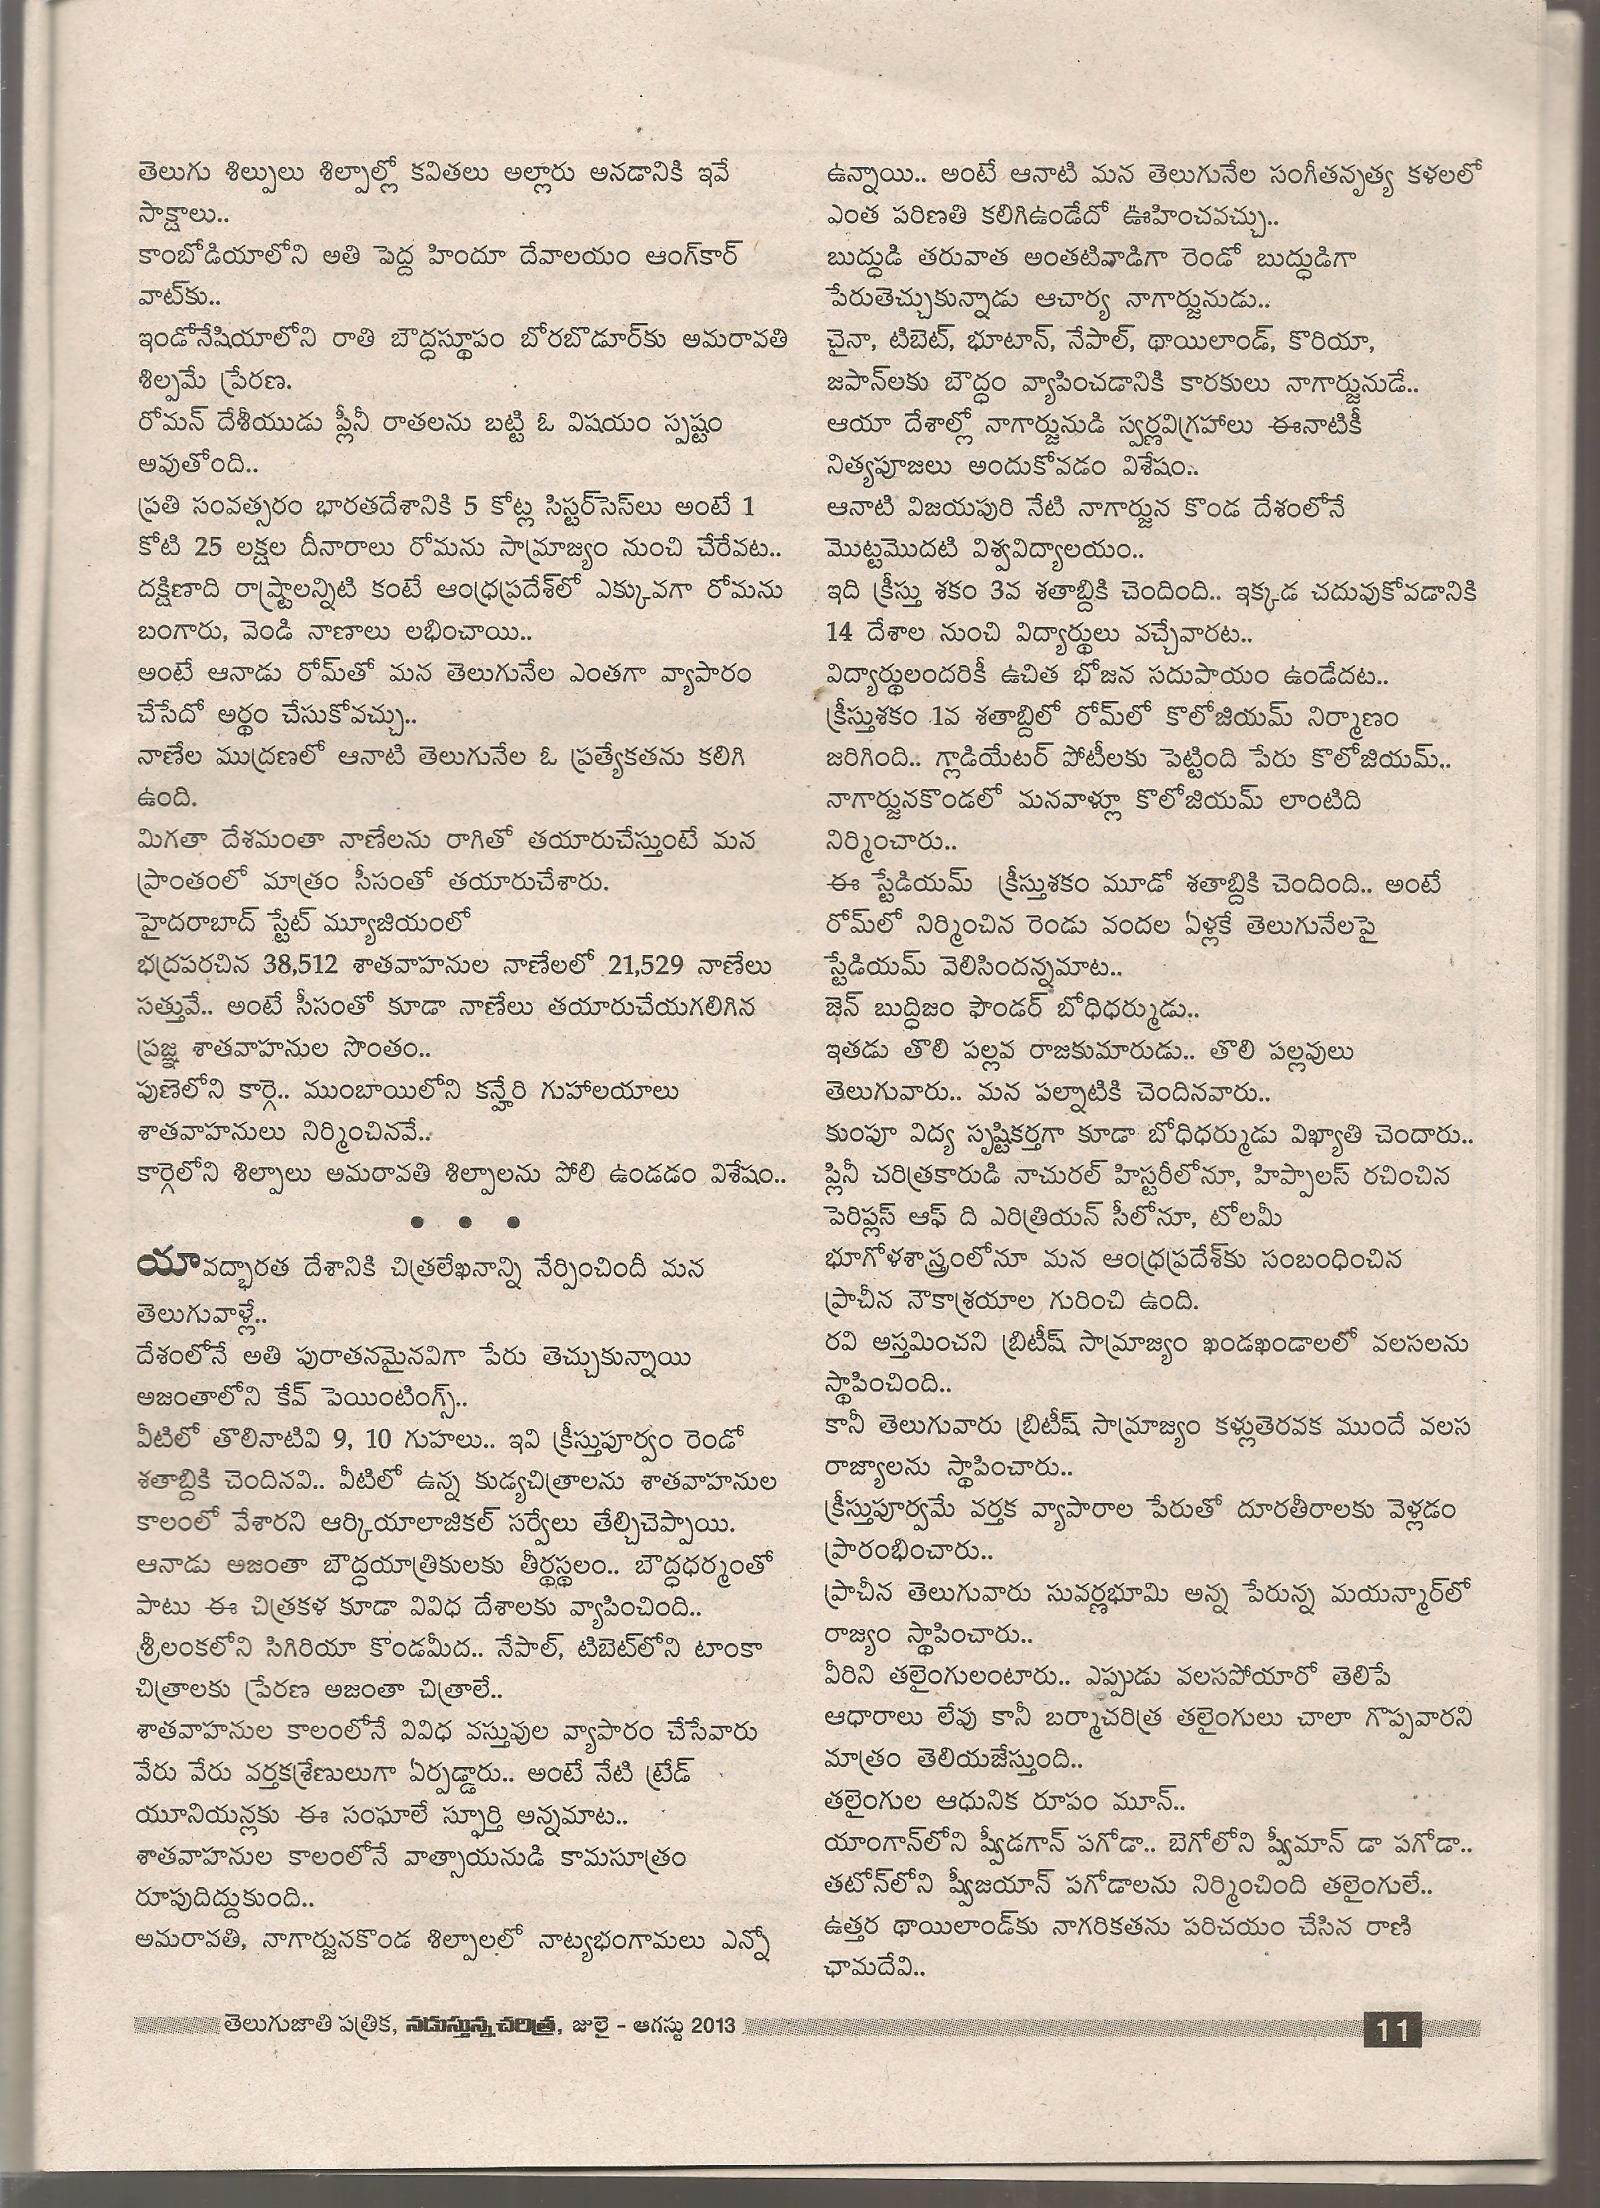 తెలుగు శిల్పులు శిల్పాల్లో కవితలు అల్లారు అనడానికి ఇవే
సాక్షాలు..
కాంబోడియాలోని అతి పెద్ద హిందూ దేవాలయం ఆంగ్‌కార్
వాట్‌కు..
ఇండోనేషియాలోని రాతి బౌద్ధస్థూపం బోరబొడూర్‌కు అమరావతి
శిల్పమే ప్రేరణ.
రోమన్ దేశీయుడు ప్లీనీ రాతలను బట్టి ఓ విషయం స్పష్టం
అవుతోంది..
ప్రతి సంవత్సరం భారతదేశానికి 5 కోట్ల సిస్టర్‌సెస్‌లు అంటే 1
కోటి 25 లక్షల దీనారాలు రోమను సామ్రాజ్యం నుంచి చేరేవట..
దక్షిణాది రాష్ట్రాలన్నిటి కంటే ఆంధ్రప్రదేశ్‌లో ఎక్కువగా రోమను
బంగారు, వెండి నాణాలు లభించాయి..
అంటే ఆనాడు రోమ్‌తో మన తెలుగునేల ఎంతగా వ్యాపారం
చేసేదో అర్థం చేసుకోవచ్చు..
నాణేల ముద్రణలో ఆనాటి తెలుగునేల ఓ ప్రత్యేకతను కలిగి
ఉంది.
మిగతా దేశమంతా నాణేలను రాగితో తయారుచేస్తుంటే మన
ప్రాంతంలో మాత్రం సీసంతో తయారుచేశారు.
హైదరాబాద్ స్టేట్ మ్యూజియంలో
భద్రపరచిన 38,512 శాతవాహనుల నాణేలలో 21,529 నాణేలు
సత్తువే.. అంటే సీసంతో కూడా నాణేలు తయారుచేయగలిగిన
ప్రజ్ఞ శాతవాహనుల సొంతం..
పుణెలోని కార్లె.. ముంబాయిలోని కన్హేరి గుహాలయాలు
శాతవాహనులు నిర్మించినవే..
కార్లెలోని శిల్పాలు అమరావతి శిల్పాలను పోలి ఉండడం విశేషం..
● ● ●
యావద్భారత దేశానికి చిత్రలేఖనాన్ని నేర్పించిందీ మన
తెలుగువాళ్లే..
దేశంలోనే అతి పురాతనమైనవిగా పేరు తెచ్చుకున్నాయి
అజంతాలోని కేవ్ పెయింటింగ్స్..
వీటిలో తొలినాటివి 9, 10 గుహలు.. ఇవి క్రీస్తుపూర్వం రెండో
శతాబ్దికి చెందినవి.. వీటిలో ఉన్న కుడ్యచిత్రాలను శాతవాహనుల
కాలంలో వేశారని ఆర్కియాలాజికల్ సర్వేలు తేల్చిచెప్పాయి.
ఆనాడు అజంతా బౌద్ధయాత్రికులకు తీర్థస్థలం.. బౌద్ధధర్మంతో
పాటు ఈ చిత్రకళ కూడా వివిధ దేశాలకు వ్యాపించింది..
శ్రీలంకలోని సిగిరియా కొండమీద.. నేపాల్, టిబెట్‌లోని టాంకా
చిత్రాలకు ప్రేరణ అజంతా చిత్రాలే..
శాతవాహనుల కాలంలోనే వివిధ వస్తువుల వ్యాపారం చేసేవారు
వేరు వేరు వర్తకశ్రేణులుగా ఏర్పడ్డారు.. అంటే నేటి ట్రేడ్
యూనియన్లకు ఈ సంఘాలే స్ఫూర్తి అన్నమాట..
శాతవాహనుల కాలంలోనే వాత్సాయనుడి కామసూత్రం
రూపుదిద్దుకుంది..
అమరావతి, నాగార్జునకొండ శిల్పాలలో నాట్యభంగామలు ఎన్నో
ఉన్నాయి.. అంటే ఆనాటి మన తెలుగునేల సంగీతనృత్య కళలలో
ఎంత పరిణతి కలిగిఉండేదో ఊహించవచ్చు..
బుద్ధుడి తరువాత అంతటివాడిగా రెండో బుద్ధుడిగా
పేరుతెచ్చుకున్నాడు ఆచార్య నాగార్జునుడు..
చైనా, టిబెట్, భూటాన్, నేపాల్, థాయిలాండ్, కొరియా,
జపాన్‌లకు బౌద్ధం వ్యాపించడానికి కారకులు నాగార్జునుడే..
ఆయా దేశాల్లో నాగార్జునుడి స్వర్ణవిగ్రహాలు ఈనాటికీ
నిత్యపూజలు అందుకోవడం విశేషం..
ఆనాటి విజయపురి నేటి నాగార్జున కొండ దేశంలోనే
మొట్టమొదటి విశ్వవిద్యాలయం..
ఇది క్రీస్తు శకం 3వ శతాబ్దికి చెందింది.. ఇక్కడ చదువుకోవడానికి
14 దేశాల నుంచి విద్యార్థులు వచ్చేవారట..
విద్యార్థులందరికీ ఉచిత భోజన సదుపాయం ఉండేదట..
క్రీస్తుశకం 1వ శతాబ్దిలో రోమ్‌లో కొలోజియమ్ నిర్మాణం
జరిగింది.. గ్లాడియేటర్ పోటీలకు పెట్టింది పేరు కొలోజియమ్..
నాగార్జునకొండలో మనవాళ్లూ కొలోజియమ్ లాంటిది
నిర్మించారు..
ఈ స్టేడియమ్ క్రీస్తుశకం మూడో శతాబ్దికి చెందింది.. అంటే
రోమ్‌లో నిర్మించిన రెండు వందల ఏళ్లకే తెలుగునేలపై
స్టేడియమ్ వెలిసిందన్నమాట..
జెన్ బుద్ధిజం ఫౌండర్ బోధిధర్ముడు..
ఇతడు తొలి పల్లవ రాజకుమారుడు.. తొలి పల్లవులు
తెలుగువారు.. మన పల్నాటికి చెందినవారు..
కుంపూ విద్య సృష్టికర్తగా కూడా బోధిధర్ముడు విఖ్యాతి చెందారు..
ప్లినీ చరిత్రకారుడి నాచురల్ హిస్టరీలోనూ, హిప్పాలస్ రచించిన
పెరిప్లస్ ఆఫ్ ది ఎరిత్రియన్ సీలోనూ, టోలమీ
భూగోళశాస్త్రంలోనూ మన ఆంధ్రప్రదేశ్‌కు సంబంధించిన
ప్రాచీన నౌకాశ్రయాల గురించి ఉంది.
రవి అస్తమించని బ్రిటీష్ సామ్రాజ్యం ఖండఖండాలలో వలసలను
స్థాపించింది..
కానీ తెలుగువారు బ్రిటీష్ సామ్రాజ్యం కళ్లుతెరవక ముందే వలస
రాజ్యాలను స్థాపించారు..
క్రీస్తుపూర్వమే వర్తక వ్యాపారాల పేరుతో దూరతీరాలకు వెళ్లడం
ప్రారంభించారు..
ప్రాచీన తెలుగువారు సువర్ణభూమి అన్న పేరున్న మయన్మార్‌లో
రాజ్యం స్థాపించారు..
వీరిని తలైంగులంటారు.. ఎప్పుడు వలసపోయారో తెలిపే
ఆధారాలు లేవు కానీ బర్మాచరిత్ర తలైంగులు చాలా గొప్పవారని
మాత్రం తెలియజేస్తుంది..
తలైంగుల ఆధునిక రూపం మూన్..
యాంగాన్‌లోని ష్వీడగాన్ పగోడా.. బెగోలోని ష్వీమాన్ డా పగోడా..
తటోన్‌లోని ష్వీజయాన్ పగోడాలను నిర్మించింది తలైంగులే..
ఉత్తర థాయిలాండ్‌కు నాగరికతను పరిచయం చేసిన రాణి
ఛామదేవి..
తెలుగుజాతి పత్రిక, నడుస్తున్న చరిత్ర, జులై - ఆగస్టు 2013
11